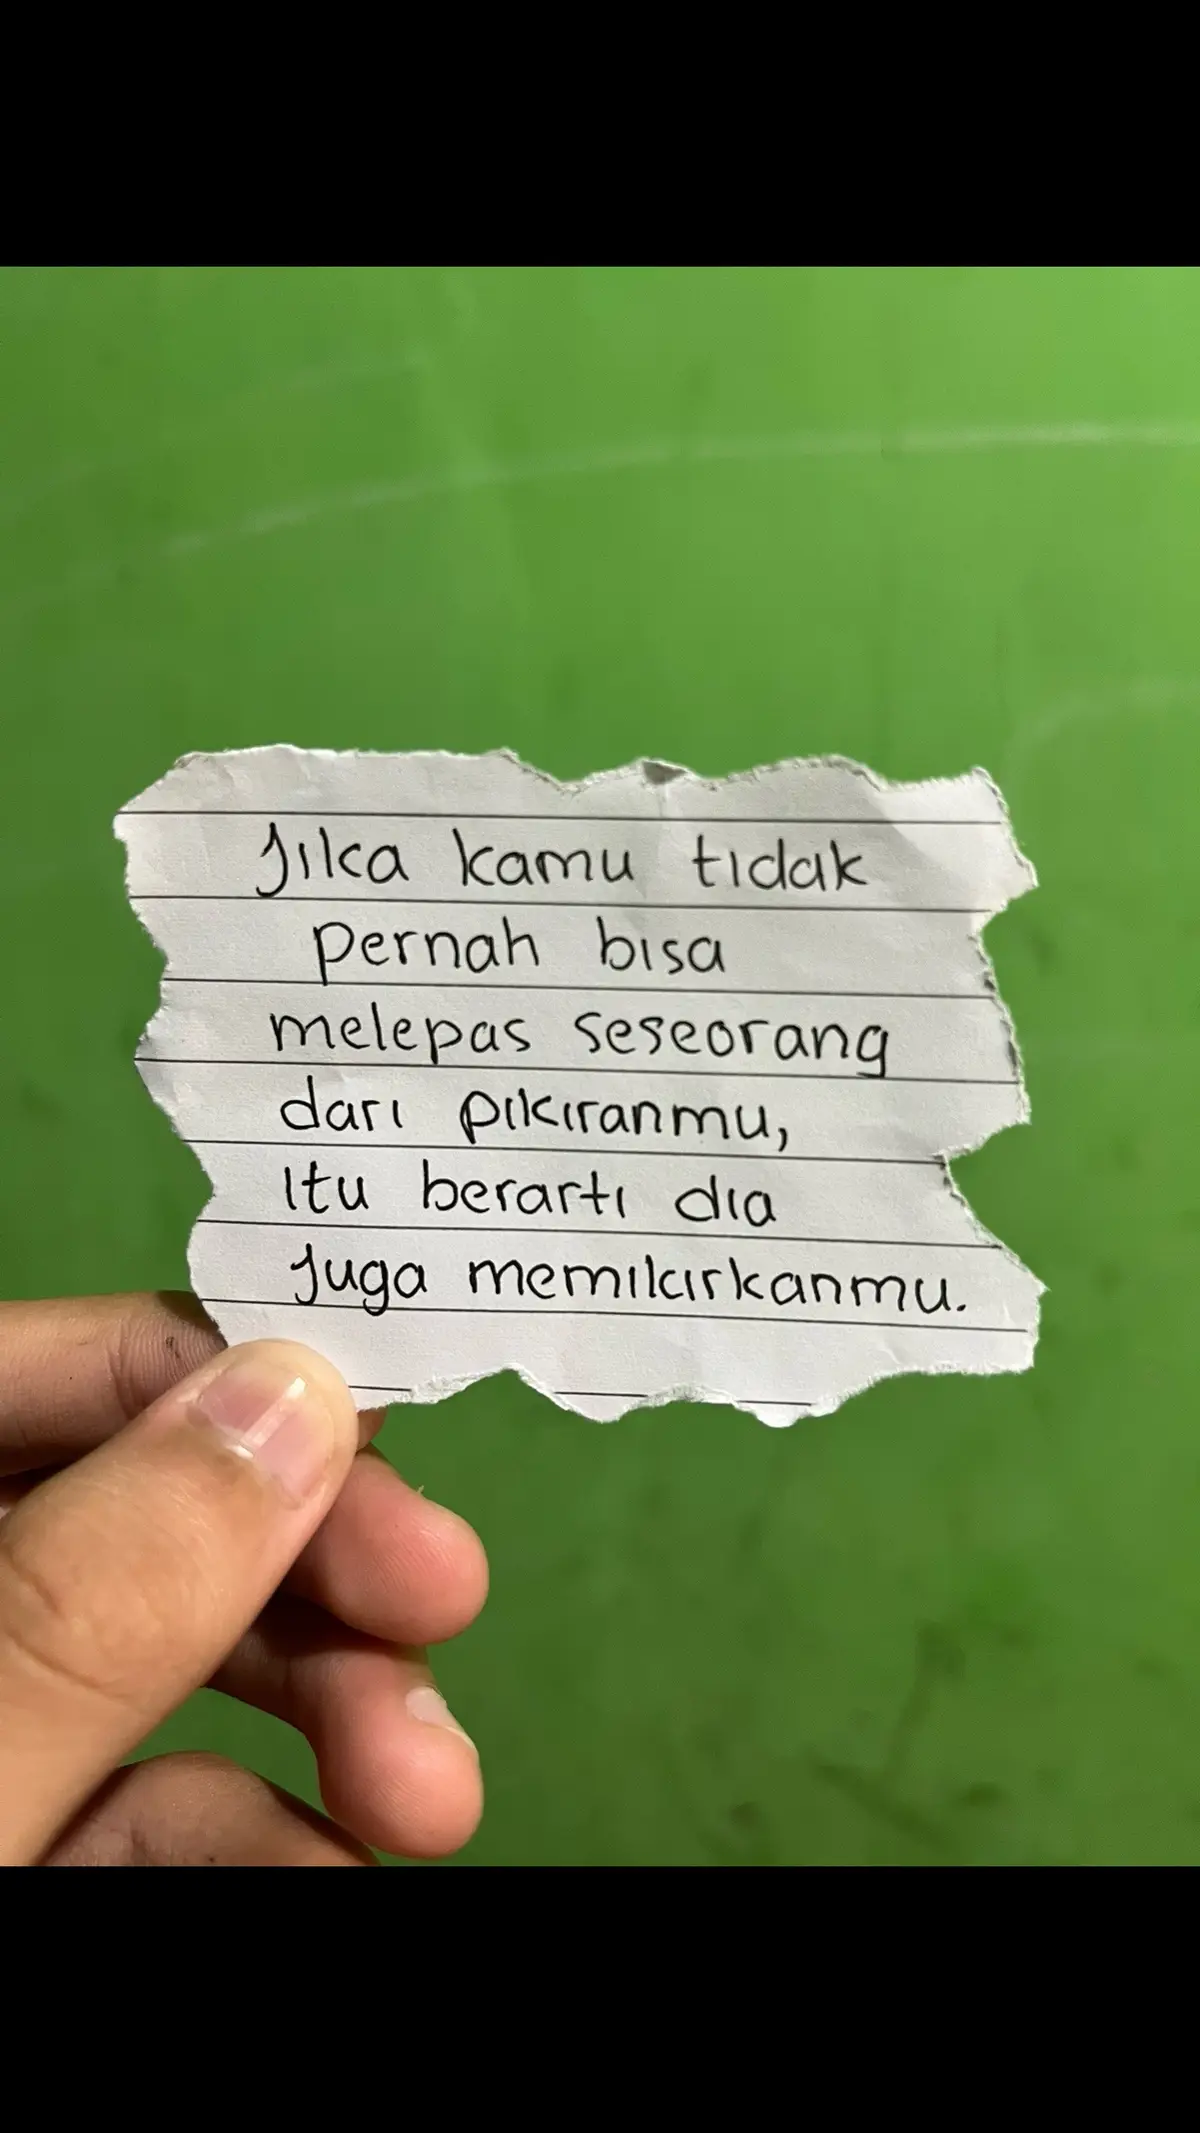 Jika kamu tidak
pernah bisa
melepas seseorang
dari pikiranmu,
Itu berarti dia
Juga memikirkanmu.